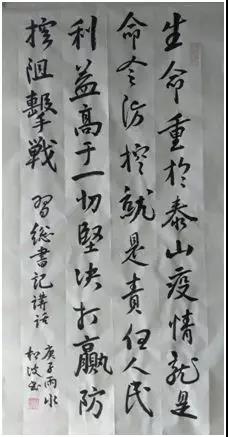 生命重於泰山疫情就是
命令防控就是責任人民
利益高于一切堅决打贏防
控阻擊戰
習総書記講话
庚子雨水